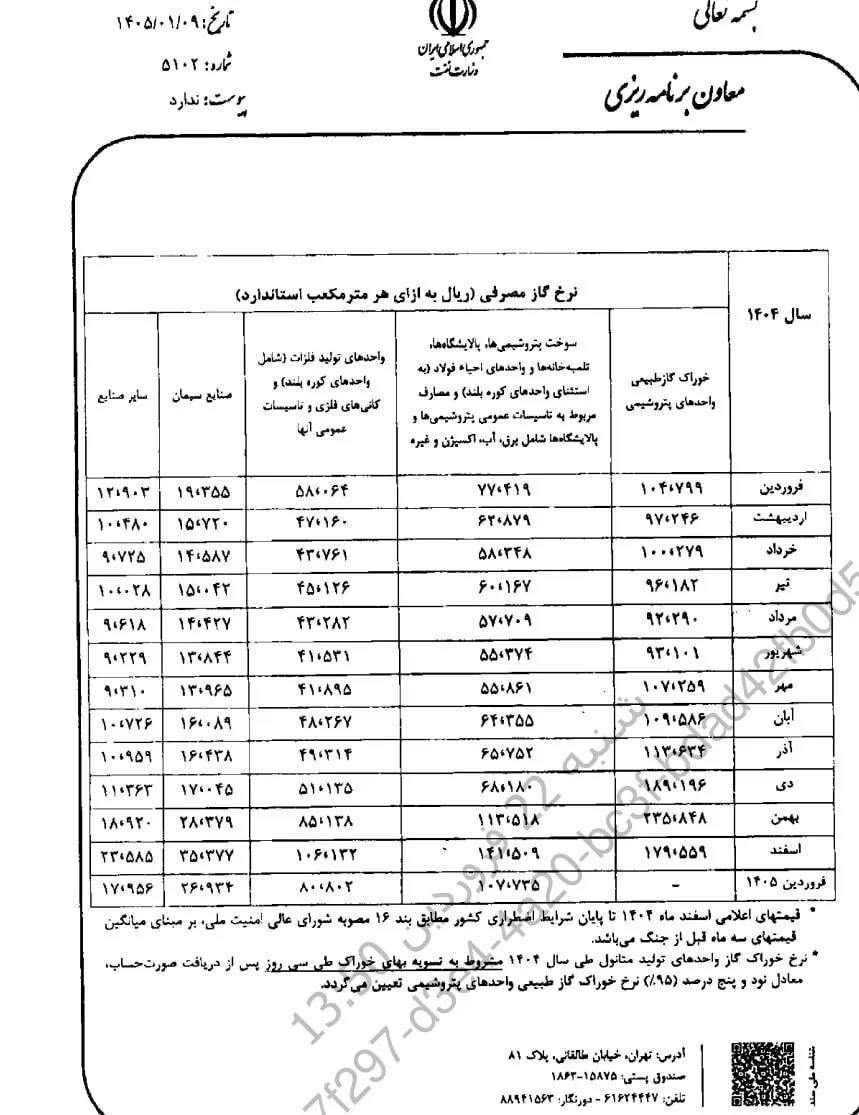 بسمه تعالی
جمهوری اسلامی ایران
وزارت نفت
تاریخ: ۱۴۰۵/۰۱/۰۹
شماره: ۵۱۰۲
پیوست: ندارد
معاون برنامه ریزی
سال ۱۴۰۴
نرخ گاز مصرفی (ریال به ازای هر مترمکعب استاندارد)
خوراک گازطبیعی
واحدهای پتروشیمی
سوخت پتروشیمی‌ها، پالایشگاه‌ها،
تلمبه‌خانه‌ها و واحدهای احیاء فولاد (به
استثنای واحدهای کوره بلند) و مصارف
مربوط به تاسیسات عمومی پتروشیمی‌ها و
پالایشگاه‌ها شامل برق، آب، اکسیژن و غیره
واحدهای تولید فلزات (شامل
واحدهای کوره بلند) و
کانی‌های فلزی و تاسیسات
عمومی آنها
صنایع سیمان
سایر صنایع
فروردین ۱۰۴،۷۹۹ ۷۷،۴۱۹ ۵۸،۰۶۴ ۱۹،۳۵۵ ۱۲،۹۰۳
اردیبهشت ۹۷،۲۴۶ ۶۲،۸۷۹ ۴۷،۱۶۰ ۱۵،۷۲۰ ۱۰،۴۸۰
خرداد ۱۰۰،۲۷۹ ۵۸،۳۴۸ ۴۳،۷۶۱ ۱۴،۵۸۷ ۹،۷۲۵
تیر ۹۶،۱۸۲ ۶۰،۱۶۷ ۴۵،۱۲۶ ۱۵،۰۴۲ ۱۰،۰۲۸
مرداد ۹۲،۲۹۰ ۵۷،۷۰۹ ۴۳،۲۸۲ ۱۴،۴۲۷ ۹،۶۱۸
شهریور ۹۳،۱۰۱ ۵۵،۳۷۴ ۴۱،۵۳۱ ۱۳،۸۴۴ ۹،۲۲۹
مهر ۱۰۷،۲۵۹ ۵۵،۸۶۱ ۴۱،۸۹۵ ۱۳،۹۶۵ ۹،۳۱۰
آبان ۱۰۹،۵۸۶ ۶۴،۳۵۵ ۴۸،۲۶۷ ۱۶،۰۸۹ ۱۰،۷۲۶
آذر ۱۱۳،۶۳۴ ۶۵،۷۵۲ ۴۹،۳۱۴ ۱۶،۴۳۸ ۱۰،۹۵۹
دی ۱۸۹،۱۹۶ ۶۸،۱۸۰ ۵۱،۱۳۵ ۱۷،۰۴۵ ۱۱،۳۶۳
بهمن ۲۳۵،۸۴۸ ۱۱۳،۵۱۸ ۸۵،۱۳۸ ۲۸،۳۷۹ ۱۸،۹۲۰
اسفند ۱۷۹،۵۵۹ ۱۴۱،۵۰۹ ۱۰۶،۱۳۲ ۳۵،۳۷۷ ۲۳،۵۸۵
فروردین ۱۴۰۵ - ۱۰۷،۷۳۵ ۸۰،۸۰۲ ۲۶،۹۳۴ ۱۷،۹۵۶
* قیمتهای اعلامی اسفند ماه ۱۴۰۴ تا پایان شرایط اضطراری کشور مطابق بند ۱۶ مصوبه شورای عالی امنیت ملی، بر مبنای میانگین
قیمتهای سه ماه قبل از جنگ می‌باشد.
* نرخ خوراک گاز واحدهای تولید متانول طی سال ۱۴۰۴ مشروط به تسویه بهای خوراک طی سی روز پس از دریافت صورت‌حساب،
معادل نود و پنج درصد (۹۵٪) نرخ خوراک گاز طبیعی واحدهای پتروشیمی تعیین می‌گردد.
آدرس: تهران، خیابان طالقانی، پلاک ۸۱
صندوق پستی: ۱۵۸۷۵-۱۸۶۳
تلفن: ۶۱۶۲۴۴۴۷ - دورنگار: ۸۸۹۴۱۵۶۳
شناسه ملی سند
شنبه 22 فروردین 13:50
7f297-d3e4-4a20-bc3f-bdad42fb0d5